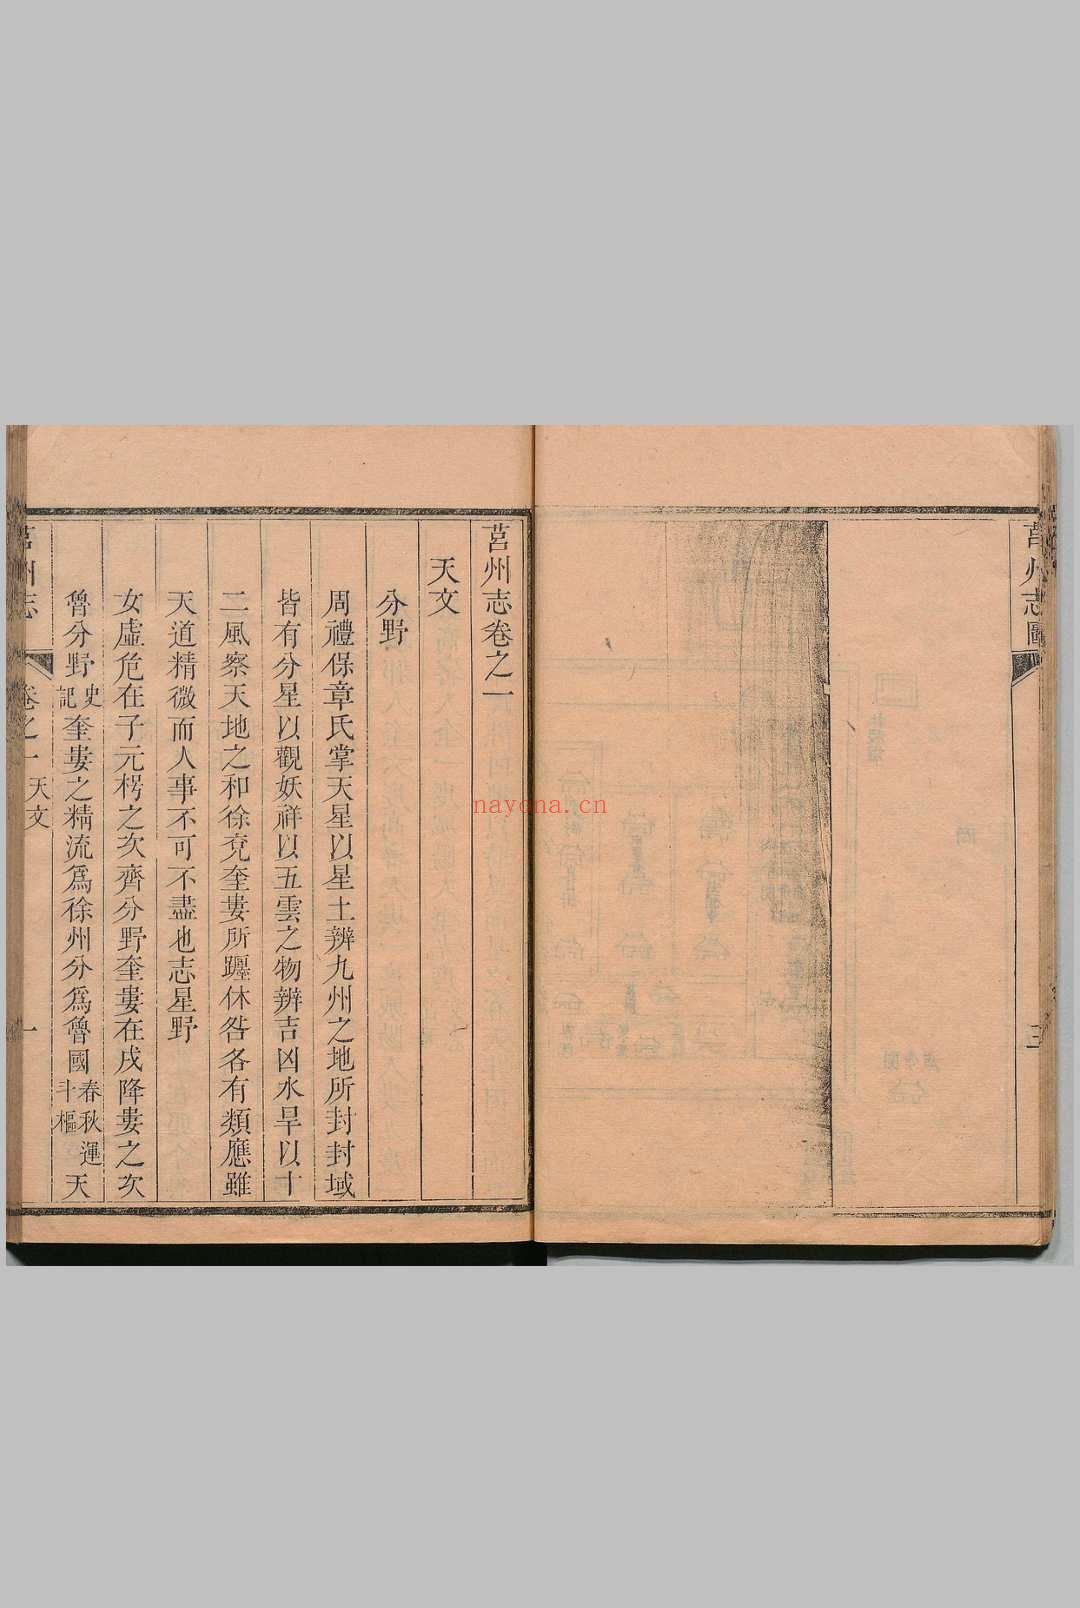 莒州志圖
三
莒州志卷之一
天文
分野
周禮保章氏掌天星以星土辨九州之地所封封域
皆有分星以觀妖祥以五雲之物辨吉凶水旱以十
二風察天地之和徐兗奎婁所躔休咎各有類應雖
天道精微而人事不可不盡也志星野
女虛危在子元枵之次齊分野奎婁在戌降婁之次
魯分野史記奎婁之精流爲徐州分爲魯國春秋運斗樞天
莒州志
卷之一
天文
一
nayona.cn